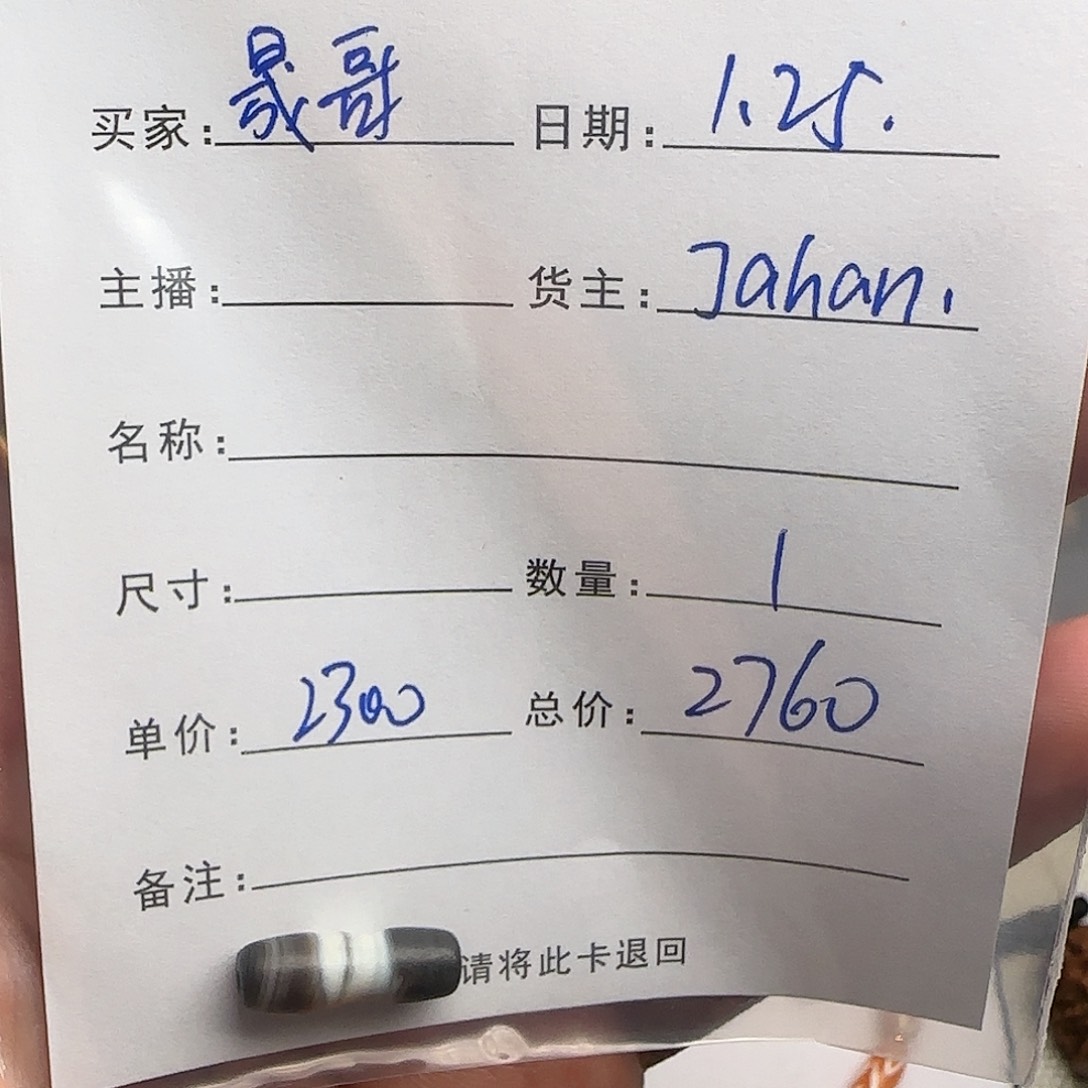 买家:晟哥 日期:1.25.
主播: 货主:Jahan.
名称:
尺寸: 数量:1
单价:2300 总价:2760
备注:
请将此卡退回